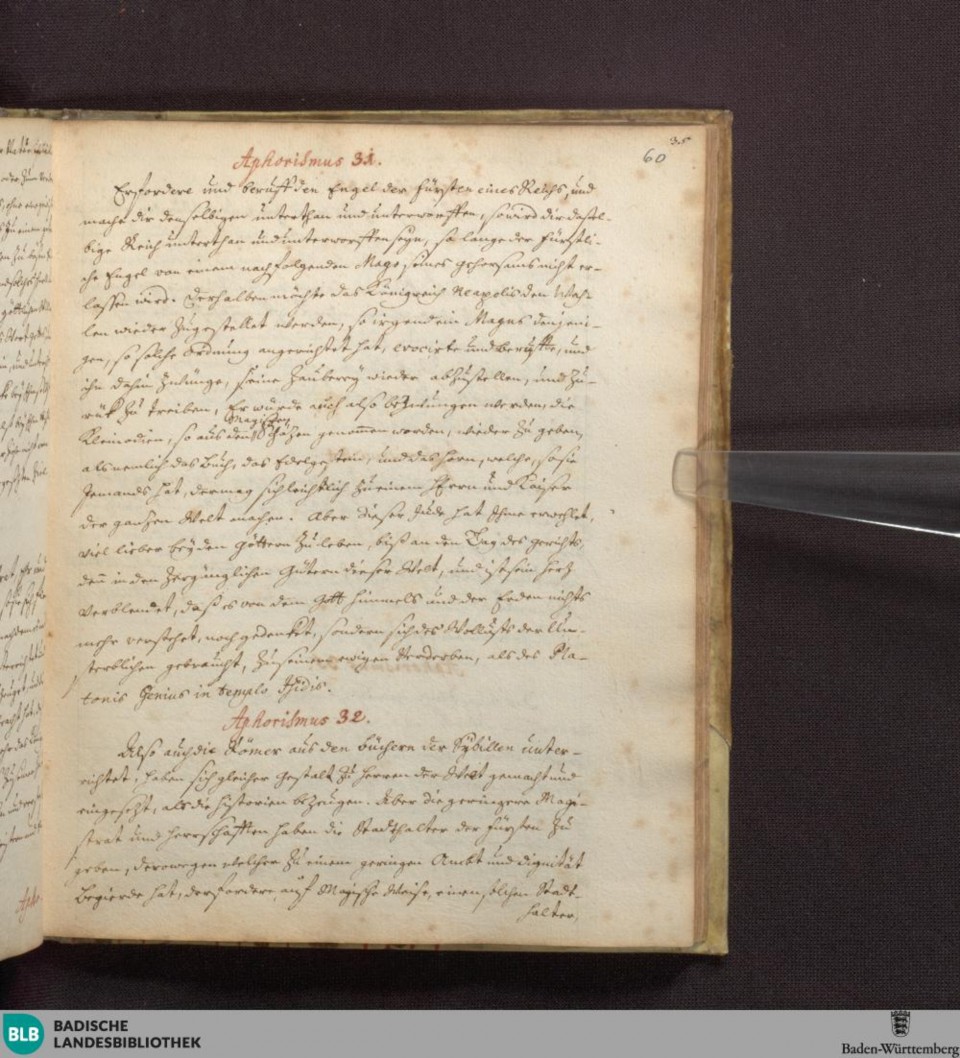 35
60
Aphorismus 31.
Erfordere und beruff den Engel der Fürsten eines Reichs, und
mache dir denselbigen unterthan und unterworffen, so wird dir dassel-
bige Reich unterthan und unterworffen seyn, so lange der Fürstli-
che Engel von einem nachfolgenden Mago seines gehorsams nicht er-
lassen wird. Derhalben möchte das Königreich Neapolis den Wah-
len wieder zugestellet werden, so irgend ein Magus denjeni-
gen, so solche Ordnung angerichtet hat, evocirte und beruffte, und
ihn dahin zwünge, seine Zauberey wieder abzustellen, und zu-
rük zu treiben, Er wurde auch also bezwungen werden, die
Magischen
Kleinodien, so aus den Schäzen genommen worden, wieder zu geben,
als nemlich das Buch, das Edelgestein, und das Horn, welche, so sie
Jemands hat, der mag sich leichtlich zu einem Herrn und Kaÿser
der ganzen Welt machen. Aber dieser Jude hat Ihme erwehlet,
viel lieber beÿ den Göttern zu leben, biß an den Tag des gerichts,
denn in den zergänglichen Gütern dieser Welt, und ist sein Herz
verblendet, daß es von dem Gott Himmels und der Erden nichts
mehr verstehet, noch gedenket, sondern sich des Wollusts der Un-
sterblichen gebraucht, zu seinem ewigen Verderben, als des Pla-
tonis Genius in templo Isidis.
Aphorismus 32.
Also auch die Römer aus den Büchern der Sybillen unter-
richtet, haben sich gleicher Gestalt zu Herren der Welt gemacht und
eingesezt, als die Historien bezeugen. Aber die geringere Magi-
strat und Herrschafften haben die Stadthalter der Fürsten zu
geben, derowegen welcher zu einem geringen Ambt und dignität
Begierde hat, der fordere auf Magische Weise, einen solchen Stadt-
halter,
Apho-
BLB
BADISCHE
LANDESBIBLIOTHEK
Baden-Württemberg